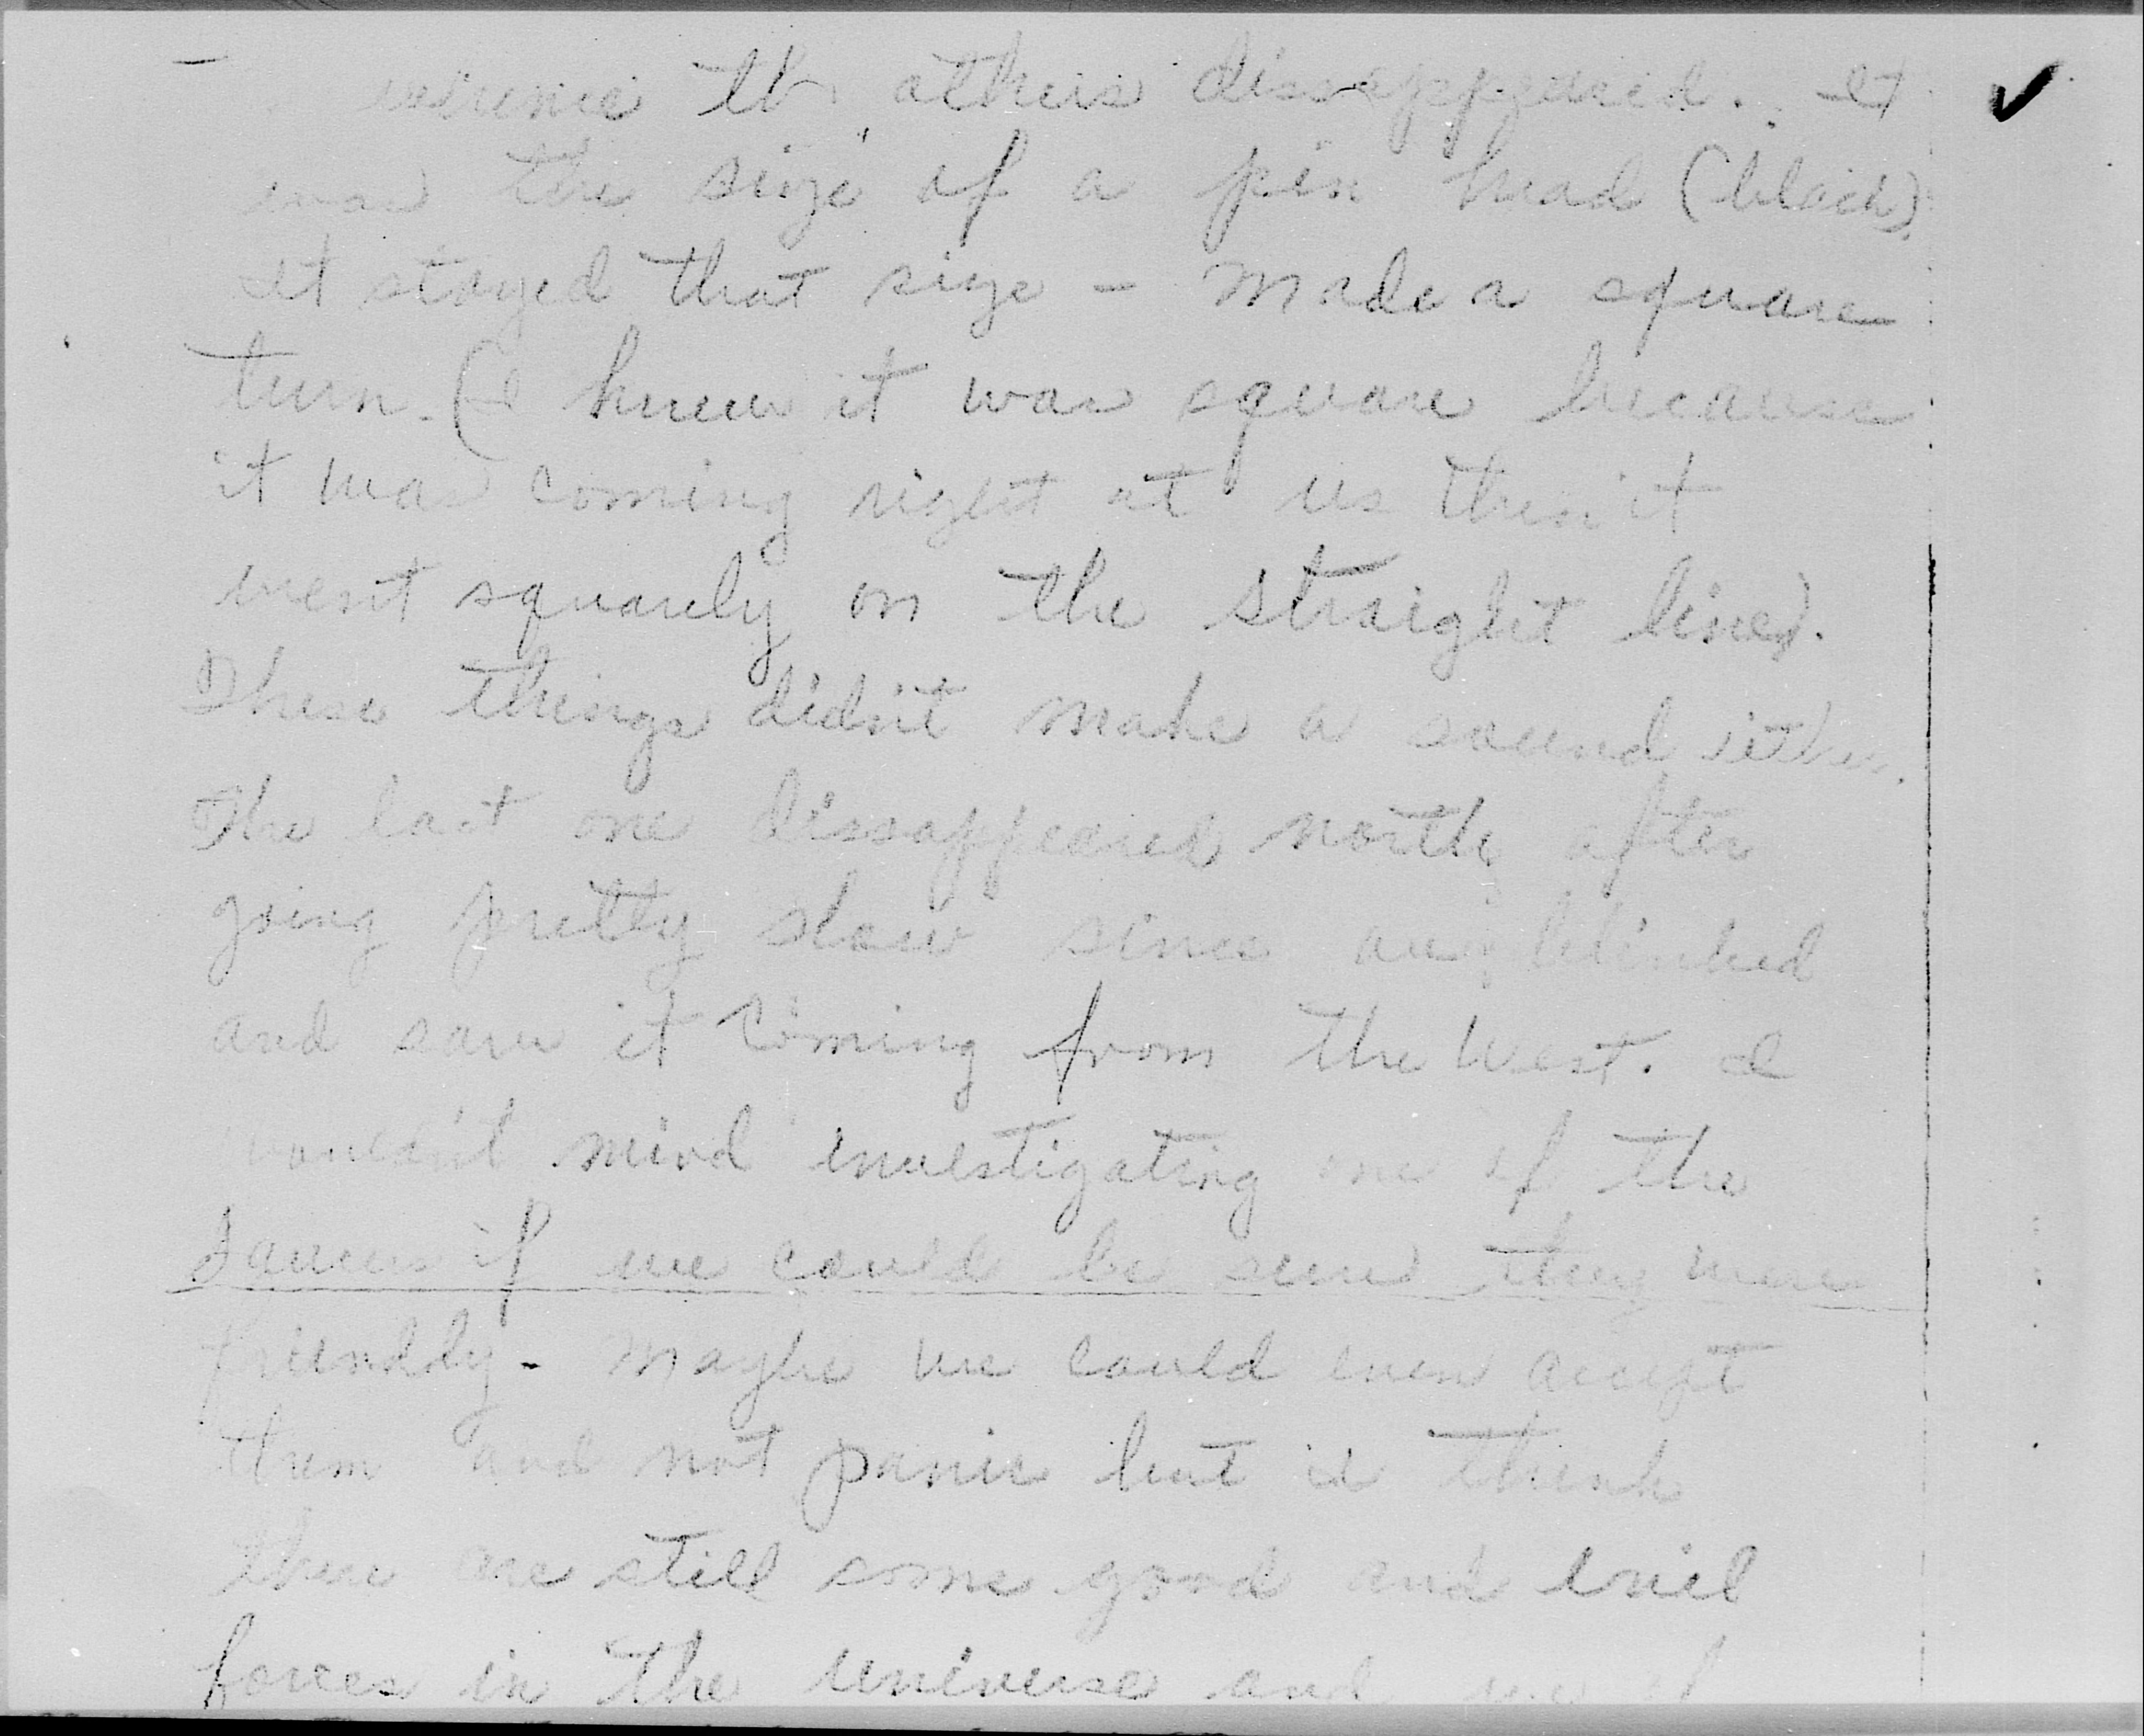 where the others dissappeared. It
was the size of a pin head (black).
It stayed that size - Made a square
turn. (I knew it was square because
it was coming right at us then it
went squarely on the straight line).
These things didn't make a sound either.
The last one dissappeared north after
going pretty slow since blinked
and saw it coming from the West. I
wouldn't mind investigating one of the
saucers if we could be sure they were
friendly - Maybe we could even accept
them and not panic but I think
there are still some good and evil
forces in the universe and